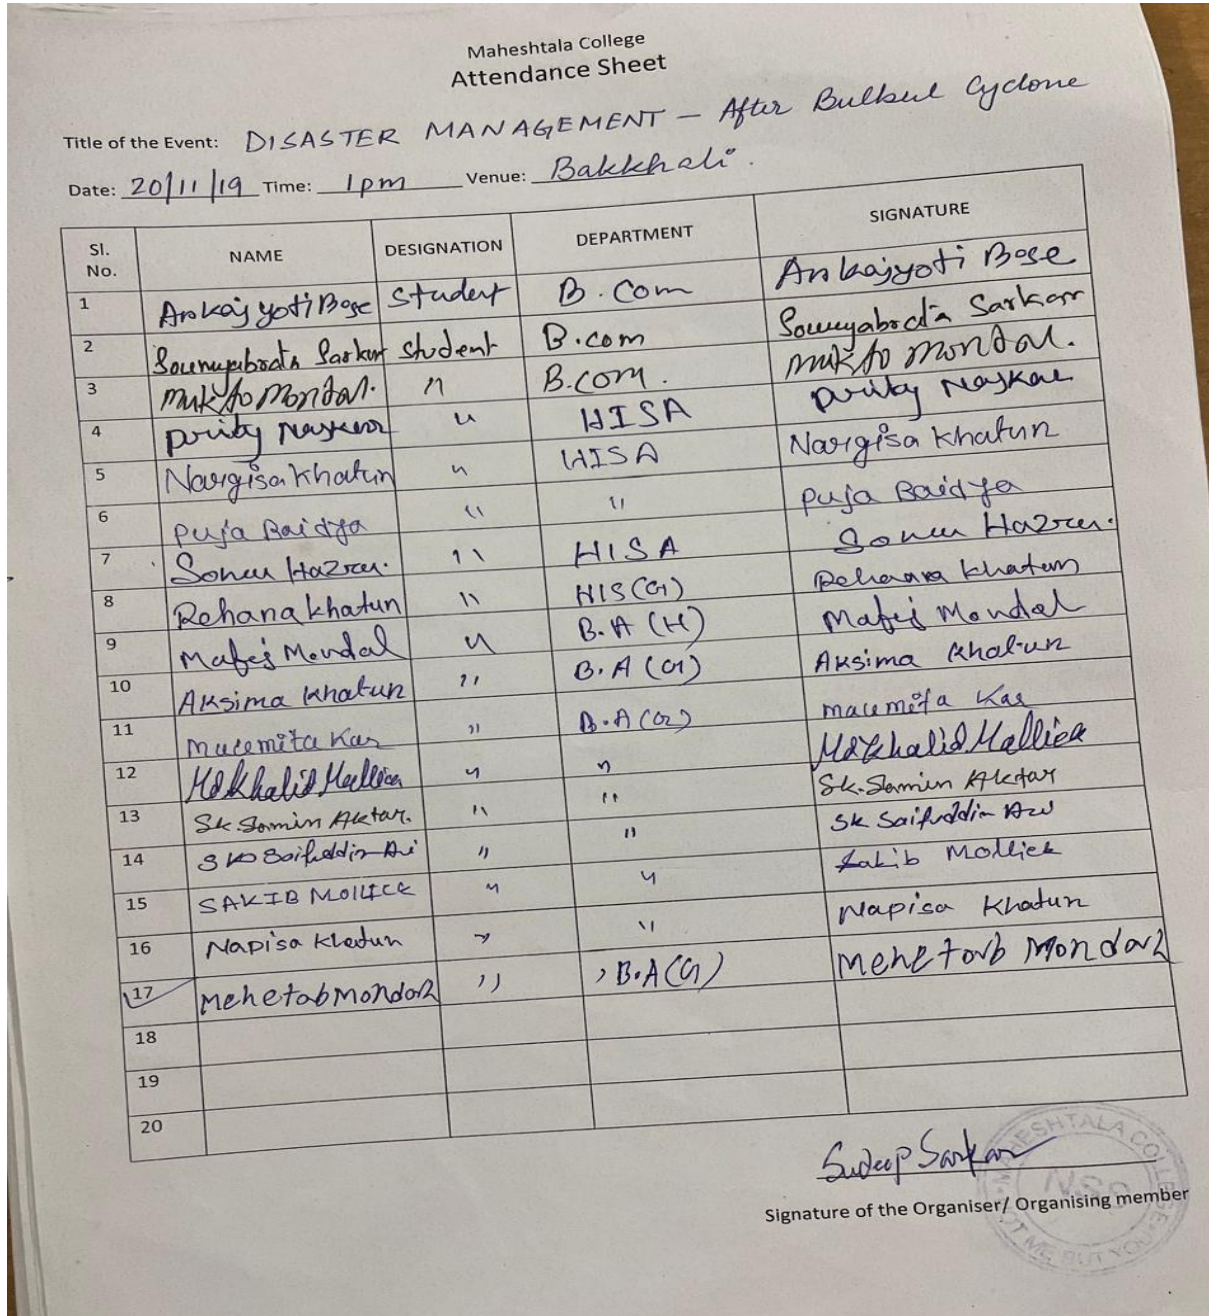 Maheshtala College
Attendance Sheet
Title of the Event: DISASTER MANAGEMENT - After Bulbul Cyclone
Date: 20/11/19 Time: 1pm Venue: Bakkhali.
Sl. No. NAME DESIGNATION DEPARTMENT SIGNATURE
1 Arkajyoti Bose Student B.Com Arkajyoti Bose
2 Soumyabrata Sarkar Student B.com Soumyabrata Sarkar
3 Mukto Mondal. " B.com. Mukto Mondal.
4 Prity Naskar " HISA Prity Naskar
5 Nargisa Khatun " HISA Nargisa Khatun
6 Puja Baidya " " Puja Baidya
7 Sonu Hazra. " HISA Sonu Hazra.
8 Rehana Khatun " HIS(G) Rehana Khatun
9 Mafij Mondal " B.A (H) Mafij Mondal
10 Aksima Khatun " B.A (G) Aksima Khatun
11 Moumita Kar " B.A(G) Moumita Kar
12 Md Khalid Mallick " " Md Khalid Mallick
13 Sk. Samim Aktar. " " Sk. Samim Aktar
14 Sk Saifuddin " " Sk Saifuddin
15 SAKIB MOLLICK " " Sakib Mollick
16 Napisa Khatun " " Napisa Khatun
17 Mehetab Mondal " B.A(G) Mehetab Mondal
18
19
20
Sudeep Sarkar
Signature of the Organiser/ Organising member
MAHESHTALA COLLEGE
NSS
NOT ME BUT YOU